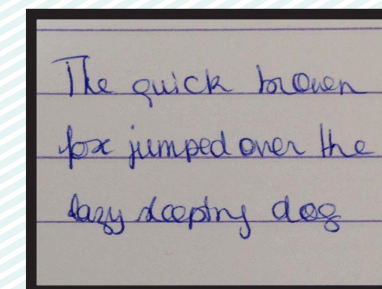 The quick brown
fox jumped over the
lazy sleeping dog